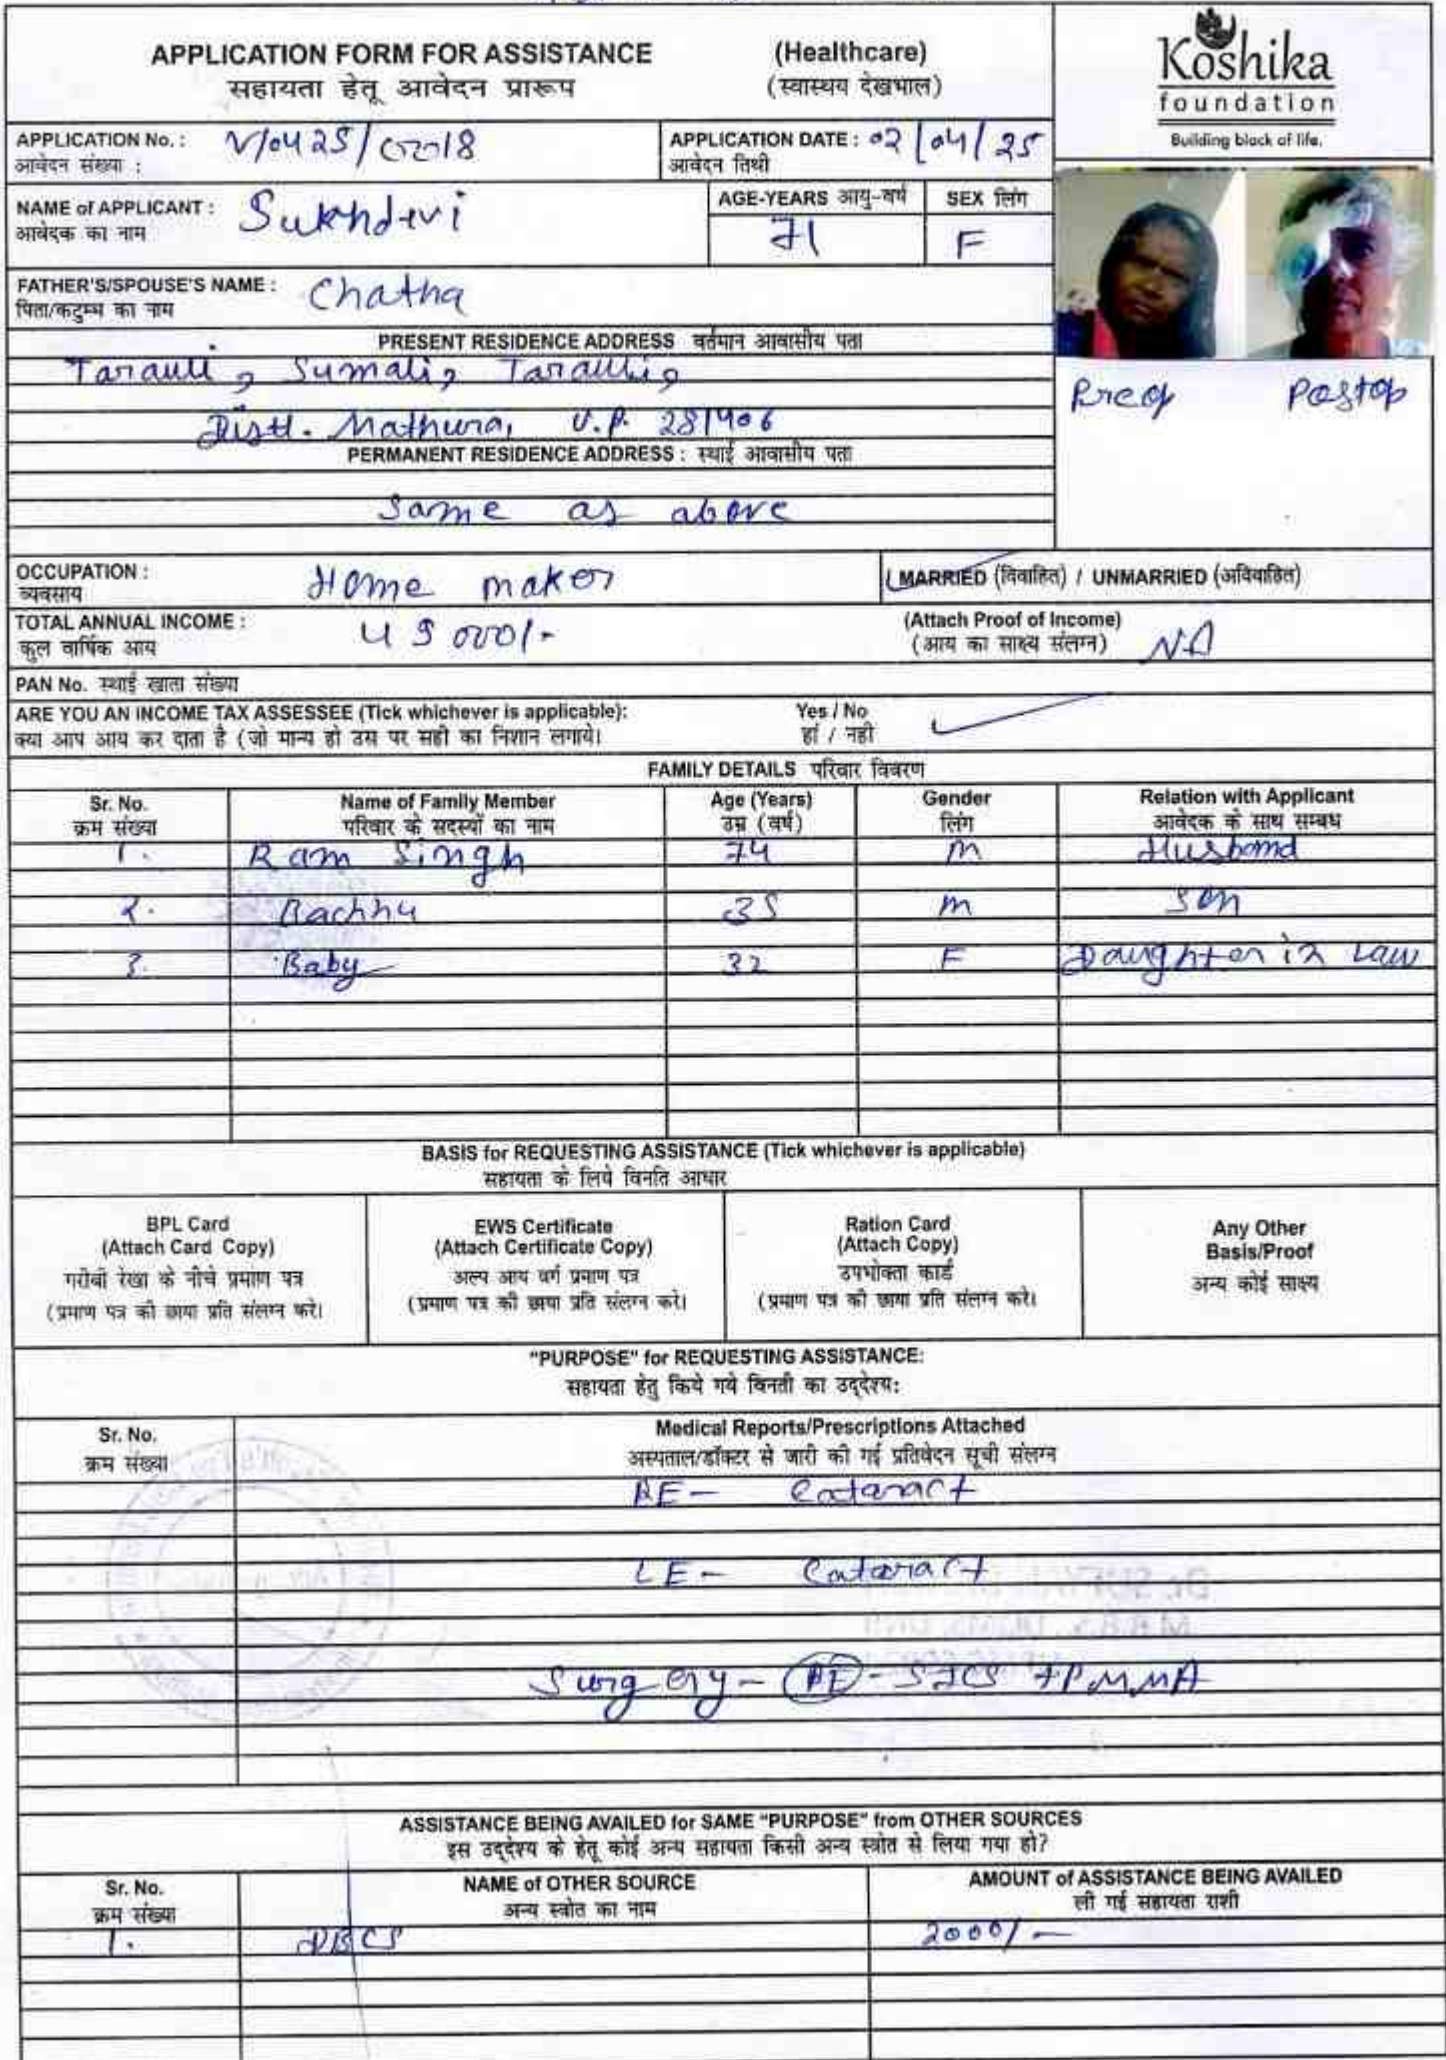 APPLICATION FORM FOR ASSISTANCE (Healthcare)
सहायता हेतू आवेदन प्रारूप (स्वास्थय देखभाल)
Koshika
foundation
Building block of life.
APPLICATION No. : V/0425/0018
आवेदन संख्या :
APPLICATION DATE : 02/04/25
आवेदन तिथी
NAME of APPLICANT : Sukhdevi
आवेदक का नाम
AGE-YEARS आयु-वर्ष SEX लिंग
71 F
FATHER'S/SPOUSE'S NAME : Chatha
पिता/कटुम्भ का नाम
PRESENT RESIDENCE ADDRESS वर्तमान आवासीय पता
Tarauli, Sumali, Tarauli,
Distt. Mathura, U.P. 281406
Preop Postop
PERMANENT RESIDENCE ADDRESS : स्थाई आवासीय पता
Same as above
OCCUPATION : Home maker
व्यवसाय
MARRIED (विवाहित) / UNMARRIED (अविवाहित)
TOTAL ANNUAL INCOME : 45000/-
कुल वार्षिक आय
(Attach Proof of Income) NA
(आय का साक्ष्य संलग्न)
PAN No. स्थाई खाता संख्या
ARE YOU AN INCOME TAX ASSESSEE (Tick whichever is applicable): Yes / No
क्या आप आय कर दाता है (जो मान्य हो उस पर सही का निशान लगाये। हां / नही
FAMILY DETAILS परिवार विवरण
Sr. No. Name of Family Member Age (Years) Gender Relation with Applicant
क्रम संख्या परिवार के सदस्यों का नाम उम्र (वर्ष) लिंग आवेदक के साथ सम्बध
1. Ram Singh 74 M Husband
2. Bachhu 35 M Son
3. Baby 32 F Daughter in Law
BASIS for REQUESTING ASSISTANCE (Tick whichever is applicable)
सहायता के लिये विनति आधार
BPL Card
(Attach Card Copy)
गरीबी रेखा के नीचे प्रमाण पत्र
(प्रमाण पत्र की छाया प्रति संलग्न करे।
EWS Certificate
(Attach Certificate Copy)
अल्प आय वर्ग प्रमाण पत्र
(प्रमाण पत्र की छाया प्रति संलग्न करे।
Ration Card
(Attach Copy)
उपभोक्ता कार्ड
(प्रमाण पत्र की छाया प्रति संलग्न करे।
Any Other
Basis/Proof
अन्य कोई साक्ष्य
"PURPOSE" for REQUESTING ASSISTANCE:
सहायता हेतु किये गये विनती का उद्देश्य:
Sr. No. Medical Reports/Prescriptions Attached
क्रम संख्या अस्पताल/डॉक्टर से जारी की गई प्रतिवेदन सूची संलग्न
RE- Cataract
LE- Cataract
Surgery - RE - SICS + PMMA
ASSISTANCE BEING AVAILED for SAME "PURPOSE" from OTHER SOURCES
इस उद्देश्य के हेतू कोई अन्य सहायता किसी अन्य स्त्रोत से लिया गया हो?
Sr. No. NAME of OTHER SOURCE AMOUNT of ASSISTANCE BEING AVAILED
क्रम संख्या अन्य स्त्रोत का नाम ली गई सहायता राशी
1. DBCS 2000/-